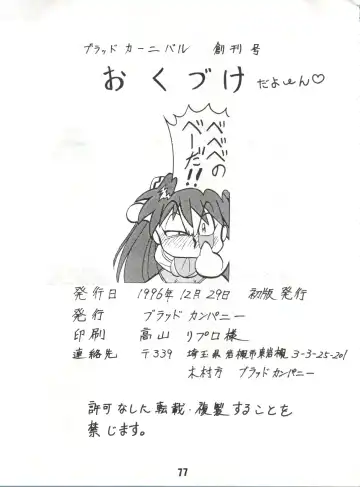 ブラッド カーニバル 創刊号
おくづけだよーん♡
べべべの
べーだ!!
発行日 1996年12月29日 初版発行
発行 ブラッド カンパニー
印刷 高山 リプロ様
連絡先 〒339 埼玉県岩槻市東岩槻3-3-25-201
木村方 ブラッド カンパニー
許可なした転載・複製することを
禁じます。
77